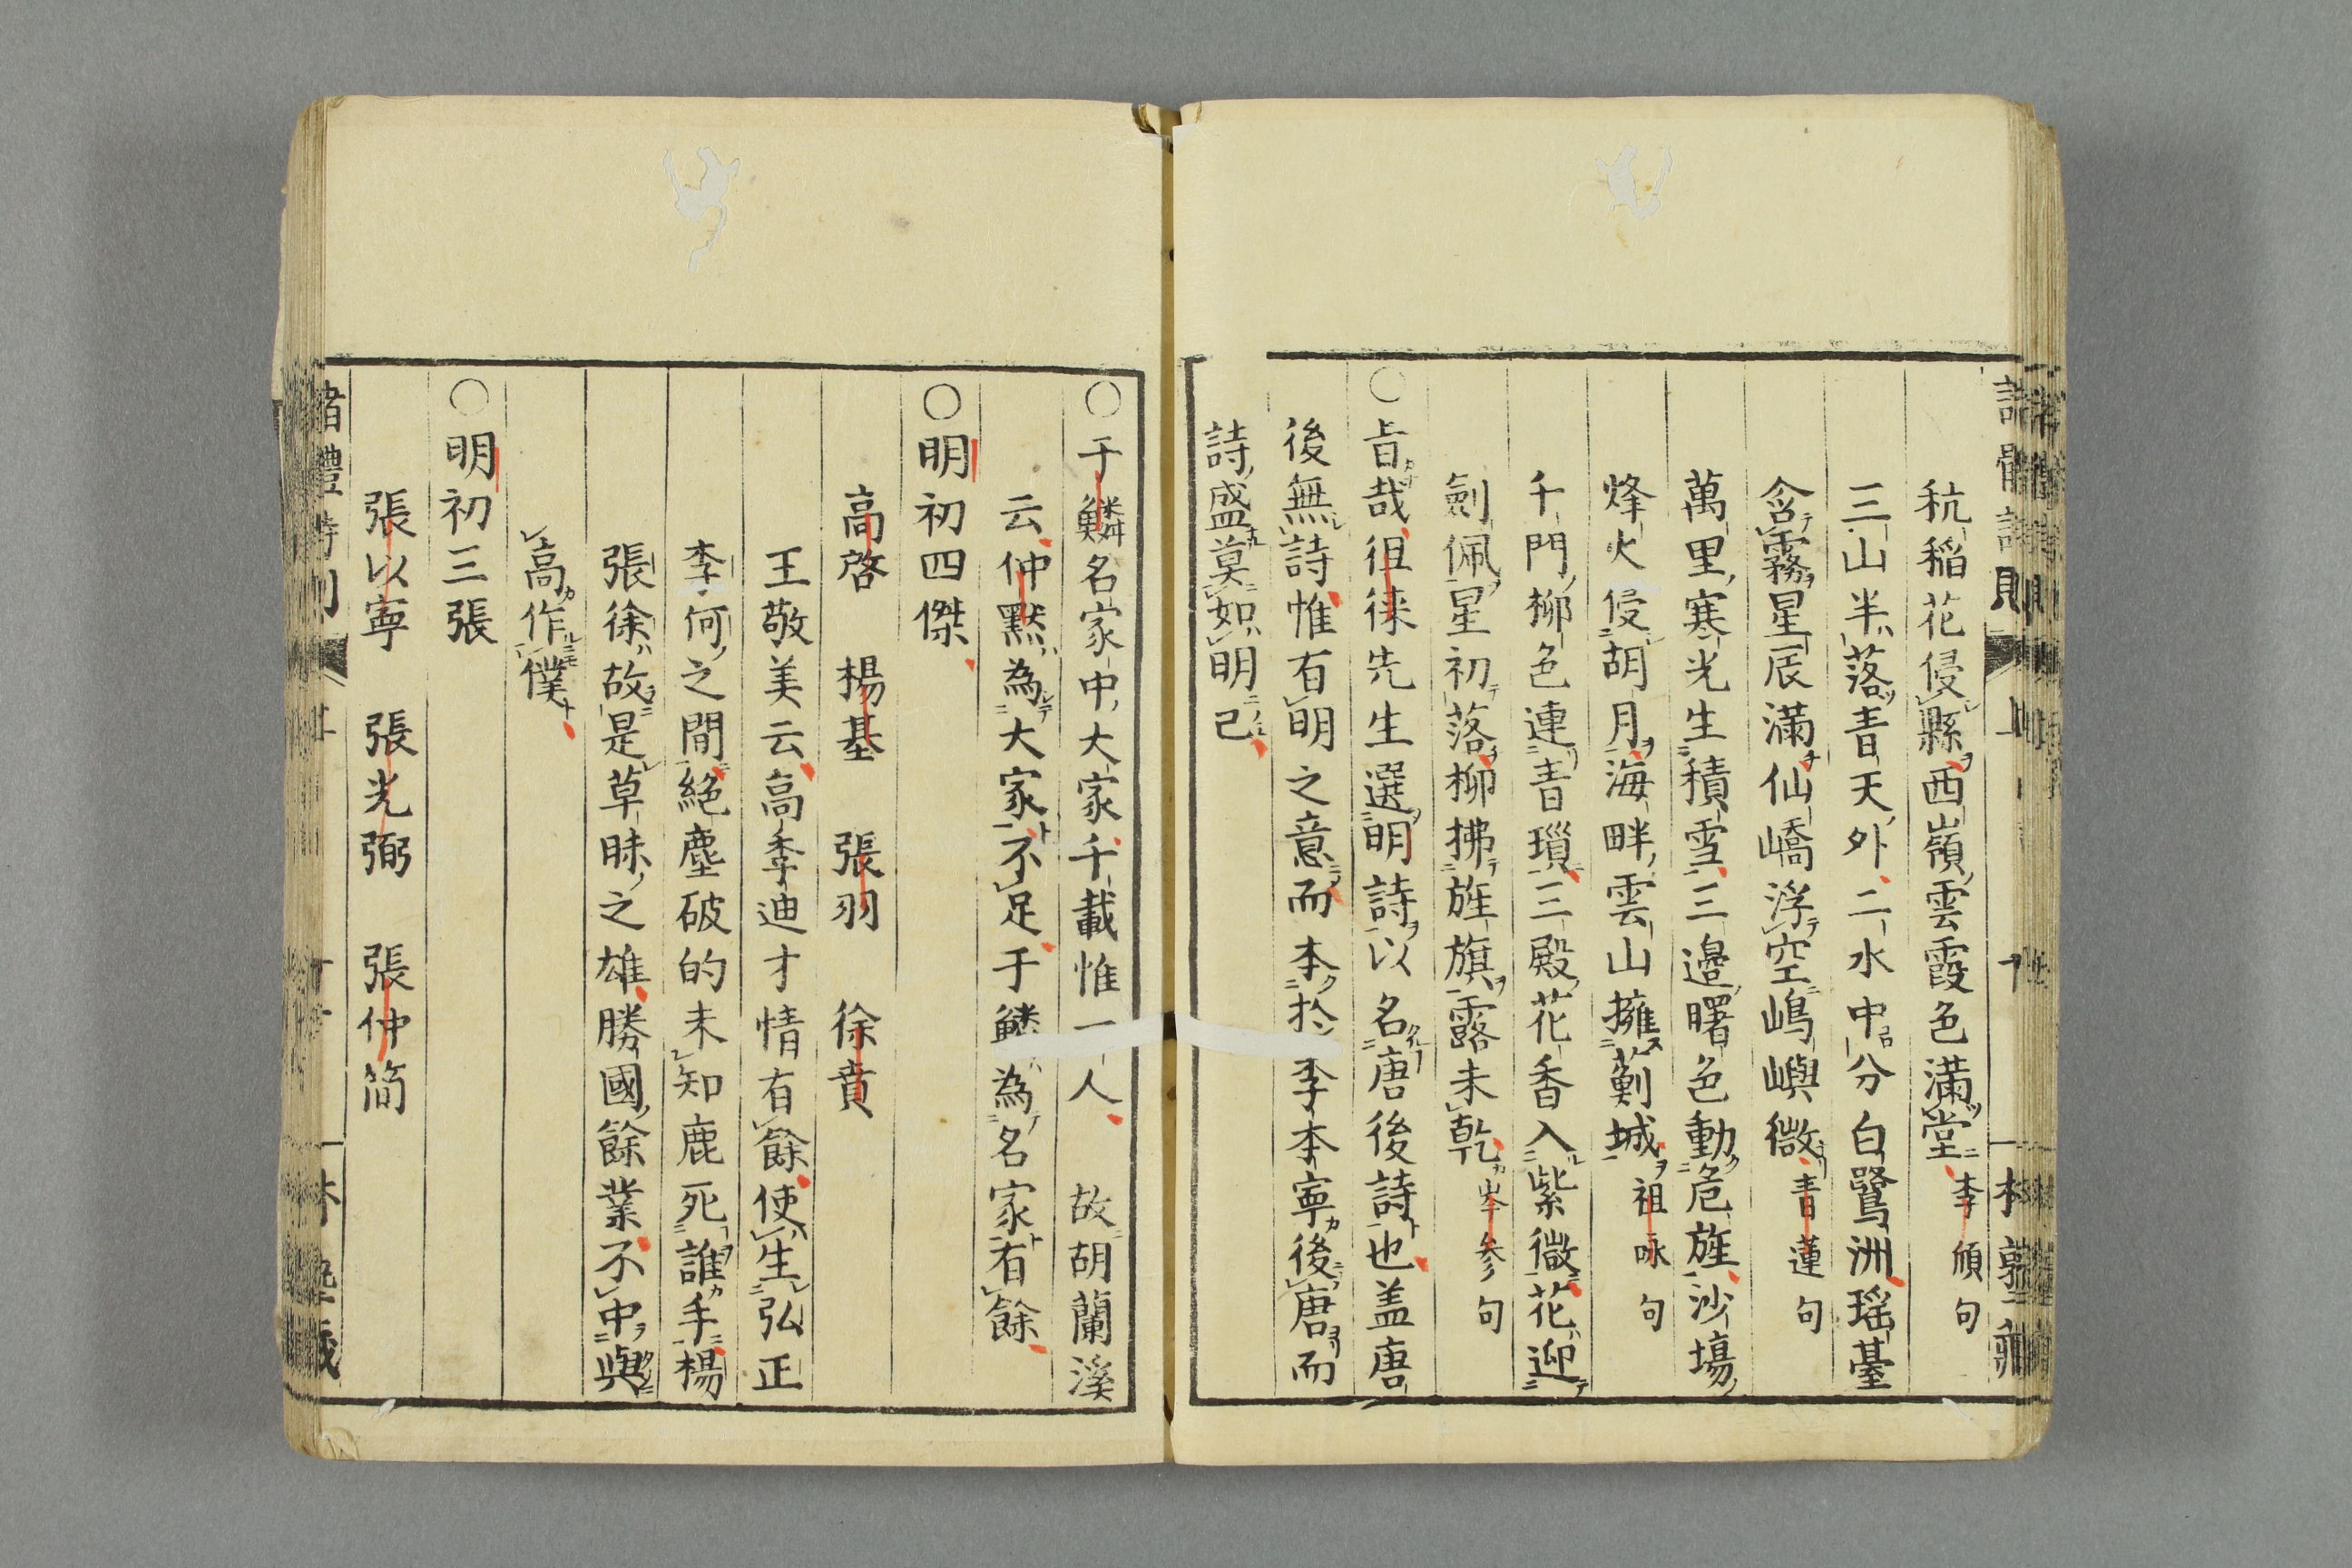 秔稲花侵縣西嶺雲霞色滿堂李頎句
三山半落青天外二水中分白鷺洲瑶臺
含霧星辰滿仙嶠浮空嶋嶼微青蓮句
萬里寒光生積雪三邉曙色動危旌沙塲
烽火侵胡月海畔雲山擁薊城祖咏句
千門柳色連青瑣三殿花香入紫微花迎
劍佩星初落柳拂旌旗露未乾岑参句
○旨哉徂徠先生選明詩以名唐後詩也盖唐
後無詩惟有明之意而本於李本寧後唐而
詩盛莫如明己
○于鱗名家中大家千載惟一人故胡蘭溪
云仲黙為大家不足于鱗為名家有餘
○明初四傑
高啓 楊基 張羽 徐賁
王敬美云高季迪才情有餘使生弘正
李何之間絕塵破的未知鹿死誰手楊
張徐故是草昧之雄勝國餘業不中與
高作僕
○明初三張
張以寧 張光弼 張仲简